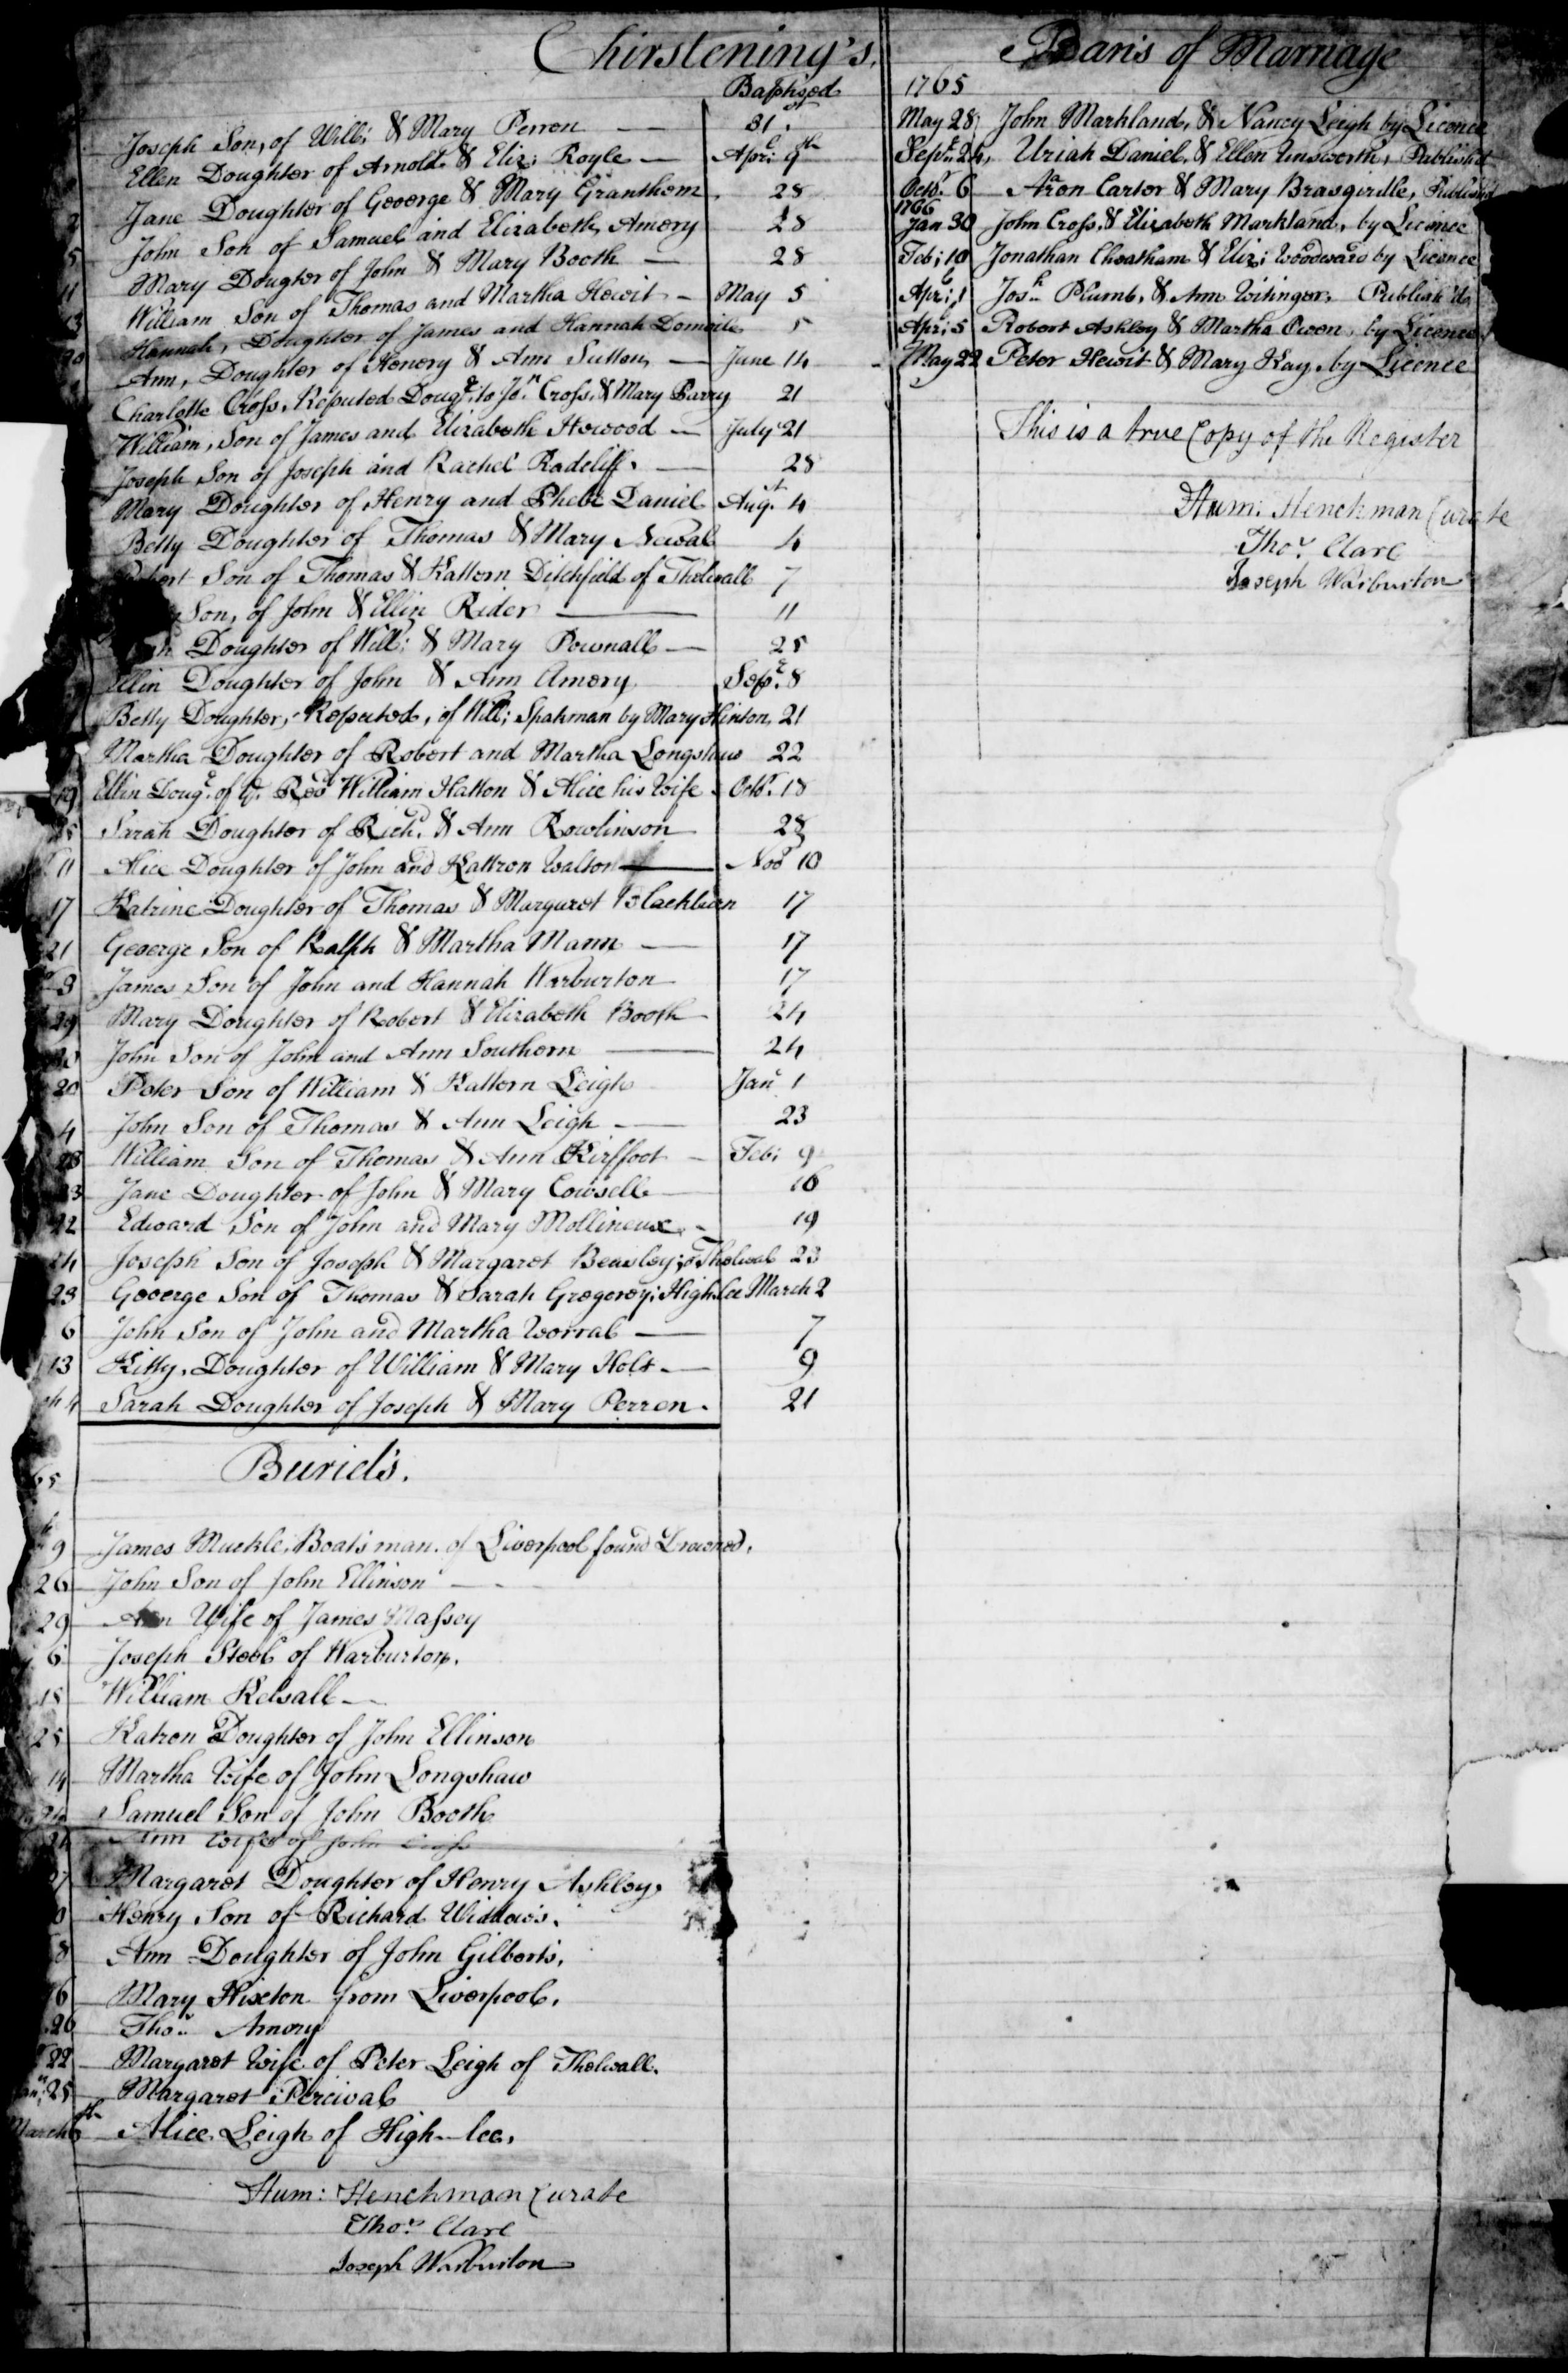 Chirstening's.
Baptised
Joseph Son, of Will: & Mary Perren — 31st.
Ellen Doughter of Arnold & Eliz: Royle — Apri:l 9th
2 Jane Doughter of Geoerge & Mary Granthem 28
5 John Son of Samuel and Elizabeth Amery 28
11 Mary Dougter of John & Mary Booth — 28
13 William Son of Thomas and Martha Hewit — May 5
20 Hannah, Doughter of James and Hannah Domvile 5
Ann, Doughter of Henery & Ann Sutton — June 14
Charlotte Cross, Reputed Dougr: to Jon. Cross, & Mary Parry 21
William, Son of James and Elizabeth Howood — July 21
Joseph Son of Joseph and Rachel Radcliff. — 28
Mary Doughter of Henry and Phebe Daniel Augst. 4
Betty Doughter of Thomas & Mary Newal 4
Son of Thomas & Kattern Ditchfield of Thelwall 7
Son, of John & Ellin Rider — 11
Doughter of Will: & Mary Pownall — 25
Ellin Doughter of John & Ann Amery Sepr. 8
Betty Doughter, Reputed, of Will; Spakman by Mary Hinton, 21
Martha Doughter of Robert and Martha Longshaw 22
19 Ellin Dougr. of ye. Revd William Hatton & Alice his Wife. Octbr. 18
25 Sarah Doughter of Richd. & Ann Rowlinson 28
11 Alice Doughter of John and Kattron Walton — Novr 10
17 Katrine Doughter of Thomas & Margaret Blackburn 17
21 Geoerge Son of Ralph & Martha Mann — 17
3 James Son of John and Hannah Warburton 17
29 Mary Doughter of Robert & Elizabeth Booth 24
John Son of John and Ann Southern — 24
20 Peter Son of William & Kattern Leigh Janr 1
4 John Son of Thomas & Ann Leigh — 23
28 William Son of Thomas & Ann Kirffoot — Feb: 9
23 Jane Doughter of John & Mary Cowsell 16
22 Edward Son of John and Mary Mollineux — 19
24 Joseph Son of Joseph & Margaret Beasley; of Thelwal 23
23 Geoerge Son of Thomas & Sarah Gregerey; High Lee March 2
6 John Son of John and Martha Worral — 7
13 Kitty, Doughter of William & Mary Holt — 9
4 Sarah Doughter of Joseph & Mary Perren. 21
65 Buried's.
9 James Muckle, Boats man. of Liverpool found Drowned.
26 John Son of John Ellinson —
29 Ann Wife of James Massey
6 Joseph Steel of Warburton.
18 William Kelsall —
25 Katron Doughter of John Ellinson
14 Martha Wife of John Longshaw
24 Samuel Son of John Booth
24 Ann Wife of John Cross
27 Margaret Doughter of Henry Ashley.
0 Henry Son of Richard Widdow's.
8 Ann Doughter of John Gilbert's.
6 Mary Hixton from Liverpool.
26 Thos. Amory
22 Margaret Wife of Peter Leigh of Thelwall.
25 Margaret Percival
March 6th Alice Leigh of High-lee.
Hum: Henchman Curate
Thos. Clare
Joseph Warburton
Ban's of Marriage
1765
May 28 John Markland, & Nancy Leigh by Licence
Sept. 24, Uriah Daniel, & Ellen Unsworth, Publishd
Octbr. 6 Aron Carter & Mary Brasgirdle, Publishd
1766
Jan 30 John Cross, & Elizabeth Markland, by Licence
Feb: 10 Jonathan Cheatham & Eliz: Woodward by Licence
Apri:l 1 Josh. Plumb, & Ann Publish'd,
Apri: 5 Robert Ashley & Martha Owen, by Licence
May 22 Peter Hewit & Mary Kay, by Licence
This is a true Copy of the Register
Hum: Henchman Curate
Thos. Clare
Joseph Warburton